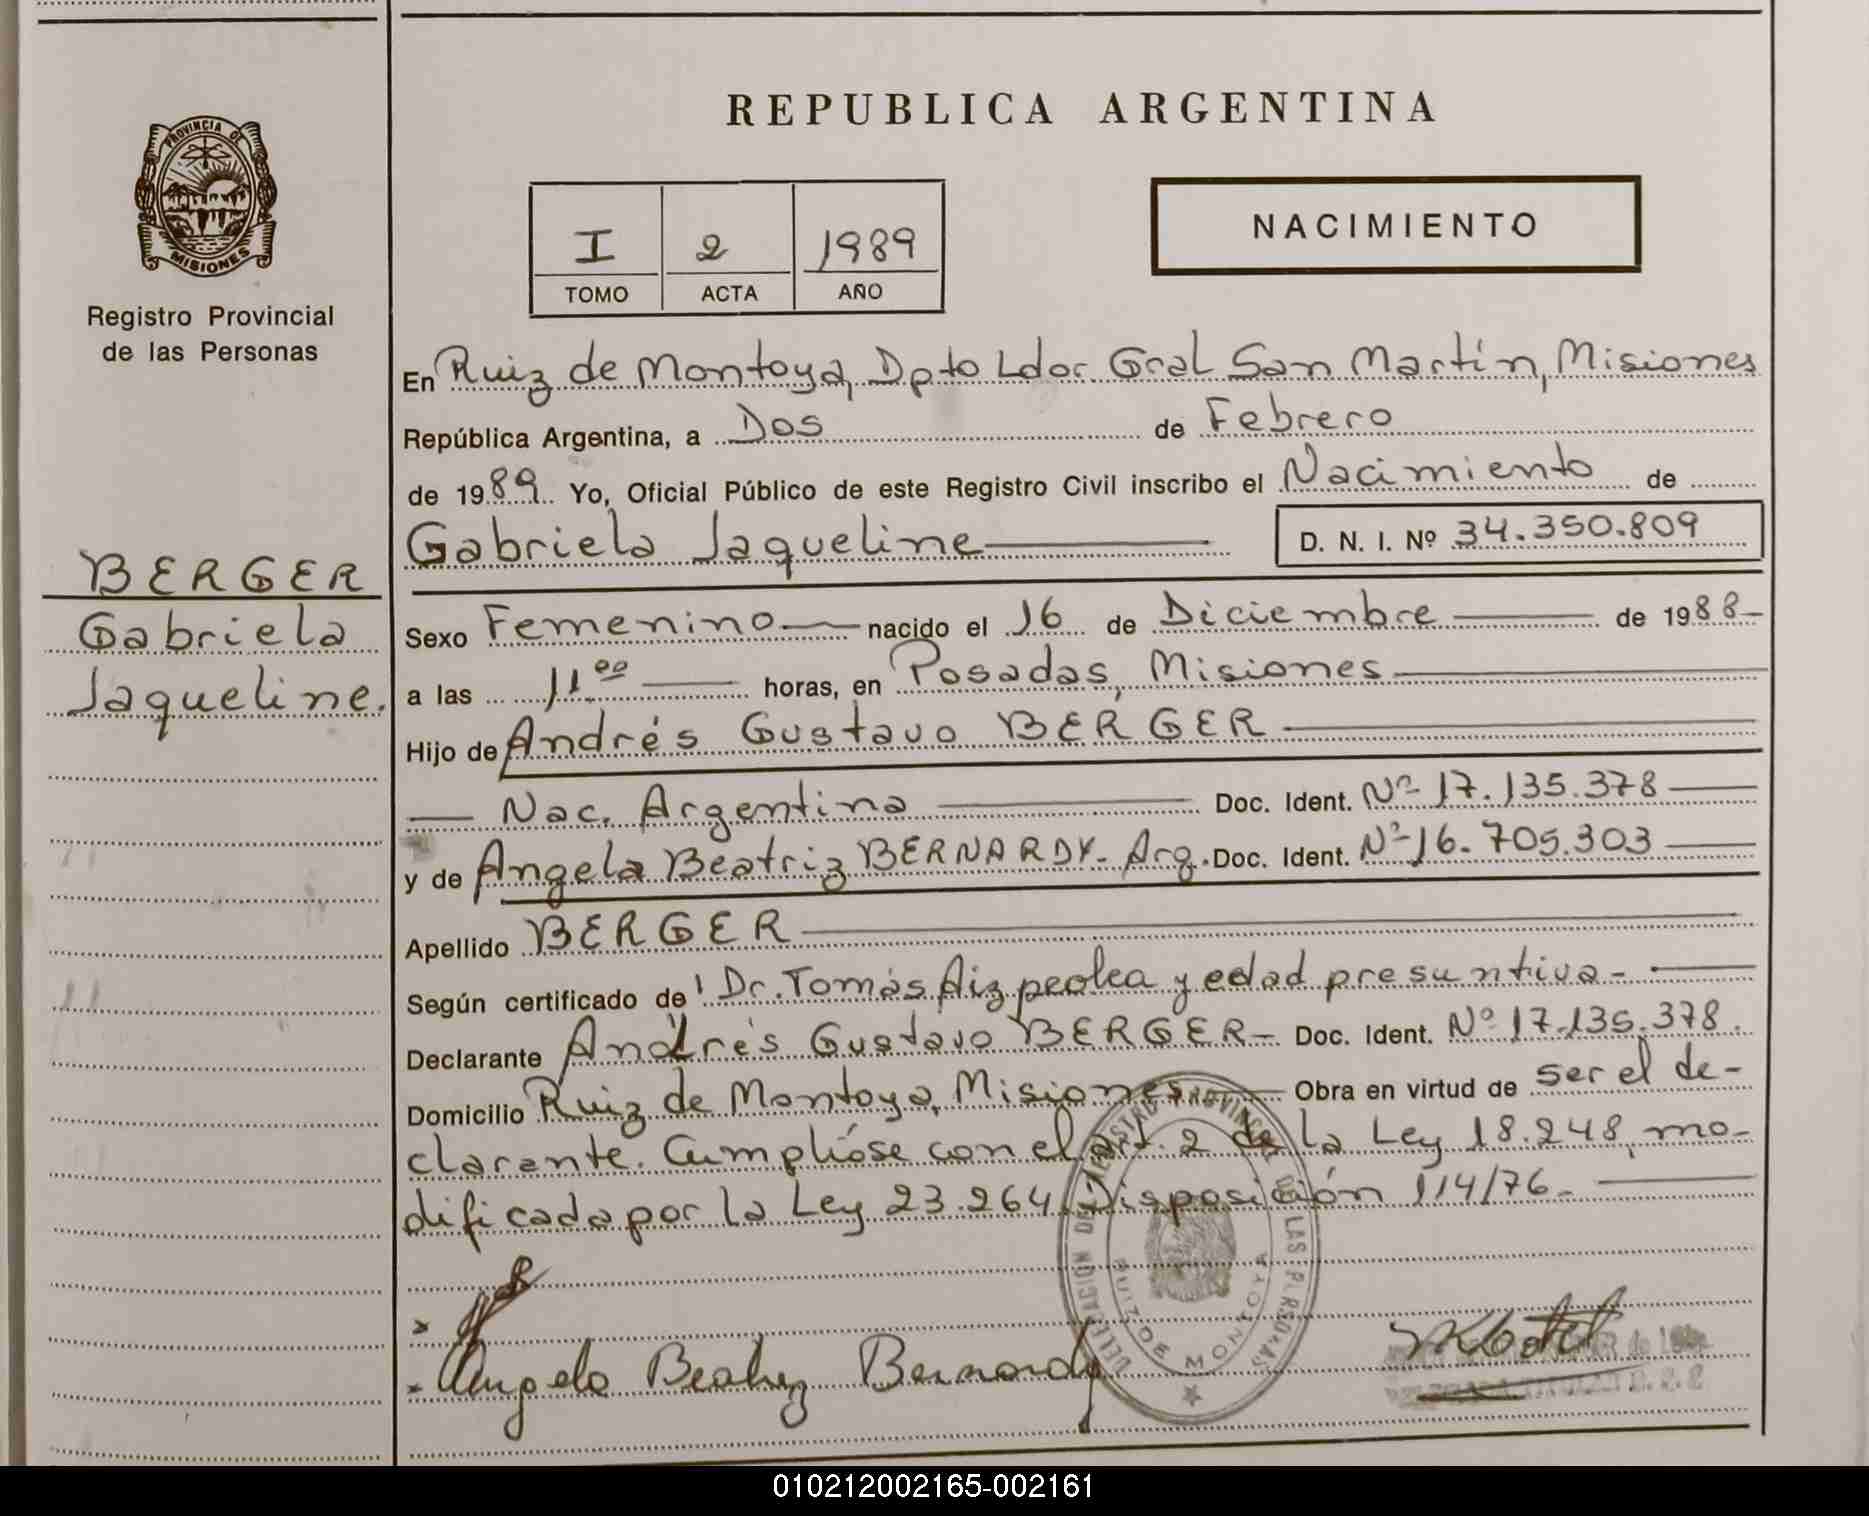 REPUBLICA ARGENTINA
PROVINCIA DE
MISIONES
Registro Provincial
de las Personas
I 2 1989
TOMO ACTA AÑO
NACIMIENTO
En Ruiz de Montoya, Dpto Ldor Gral San Martín, Misiones
República Argentina, a Dos de Febrero
de 1989. Yo, Oficial Público de este Registro Civil inscribo el Nacimiento de
Gabriela Jaqueline D. N. I. Nº 34.350.809
BERGER
Gabriela
Jaqueline.
Sexo Femenino nacido el 16 de Diciembre de 1988-
a las 11 00 horas, en Posadas, Misiones
Hijo de Andrés Gustavo BERGER
Nac. Argentina Doc. Ident. Nº 17.135.378
y de Angela Beatriz BERNARDY- Arg. Doc. Ident. Nº 16.705.303
Apellido BERGER
Según certificado de Dr. Tomás y edad presuntiva-
Declarante Andrés Gustavo BERGER- Doc. Ident. Nº 17.135.378.
Domicilio Ruiz de Montoya, Misiones Obra en virtud de ser el de-
clarante. Cumplióse con el art. 2 de la Ley 18.248, mo-
dificada por la Ley 23.264. Disposición 114/76-
DELEGACION DEL REGISTRO PROVINCIAL DE LAS PERSONAS
RUIZ DE MONTOYA
Angela Beatriz Bernardy
010212002165-002161